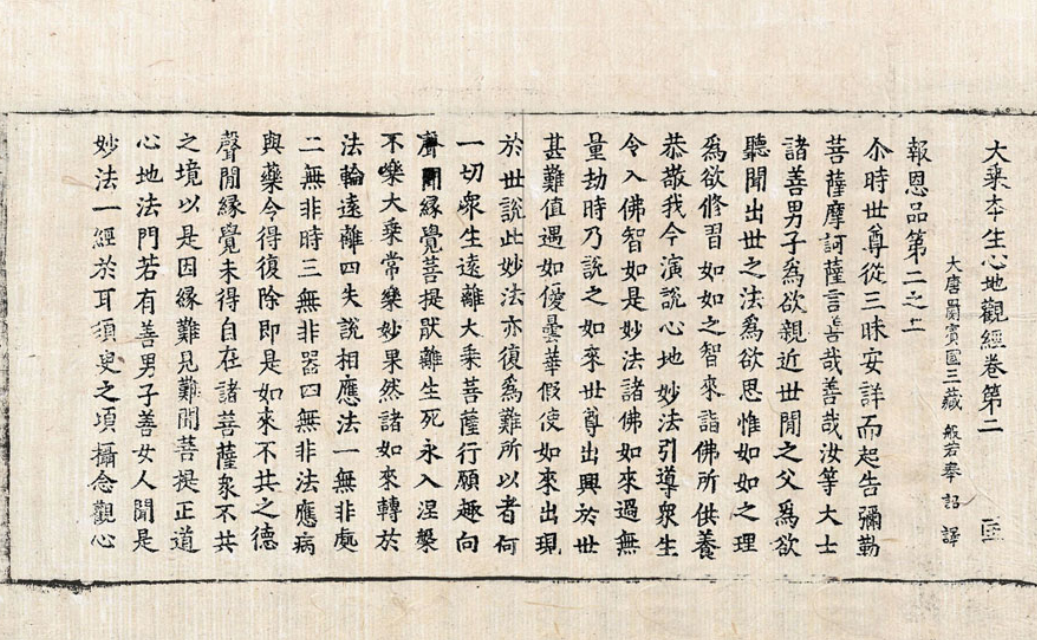 大乗本生心地觀經卷第二
大唐罽賓國三藏 般若奉 詔 譯
報恩品第二之上
尒時世尊從三昧安詳而起告彌勒
菩薩摩訶薩言善哉善哉汝等大士
諸善男子爲欲親近世閒之父爲欲
聽聞出世之法爲欲思惟如如之理
爲欲修習如如之智來詣佛所供養
恭敬我今演說心地妙法引導衆生
令入佛智如是妙法諸佛如來過無
量劫時乃說之如來世尊出興於世
甚難值遇如優曇華假使如來出現
於世說此妙法亦復爲難所以者何
一切衆生遠離大乗菩薩行願趣向
聲聞緣覺菩提猒離生死永入涅槃
不樂大乗常樂妙果然諸如來轉於
法輪遠離四失說相應法一無非處
二無非時三無非器四無非法應病
與藥令得復除即是如來不共之德
聲聞緣覺未得自在諸菩薩衆不共
之境以是因緣難見難聞菩提正道
心地法門若有善男子善女人聞是
妙法一經於耳須臾之頃攝念觀心